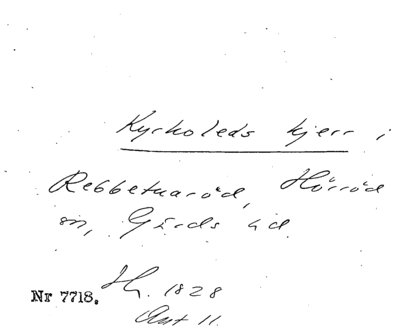 Kyrkoleds kjerr i
Rebbetuaröd, Hörröd
sn, Gärds hd.
Nr 7718. Hy. 1828
Akt 11.